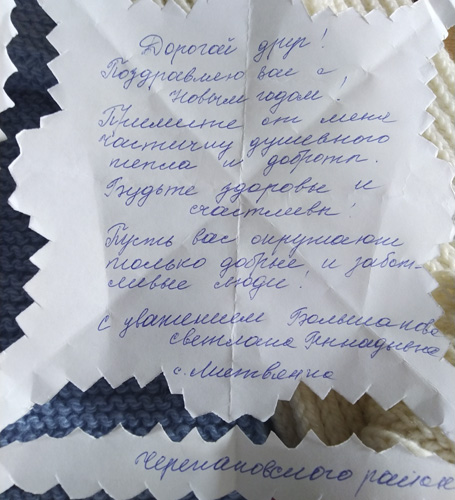 Дорогой друг!
Поздравляю вас с
Новым годом!
Примите от меня
частичку душевного
тепла и доброты.
Будьте здоровы и
счастливы!
Пусть вас окружают
только добрые и забот-
ливые люди.
С уважением Большакова
Светлана Геннадьевна
с. Листвянка
Черепановского района